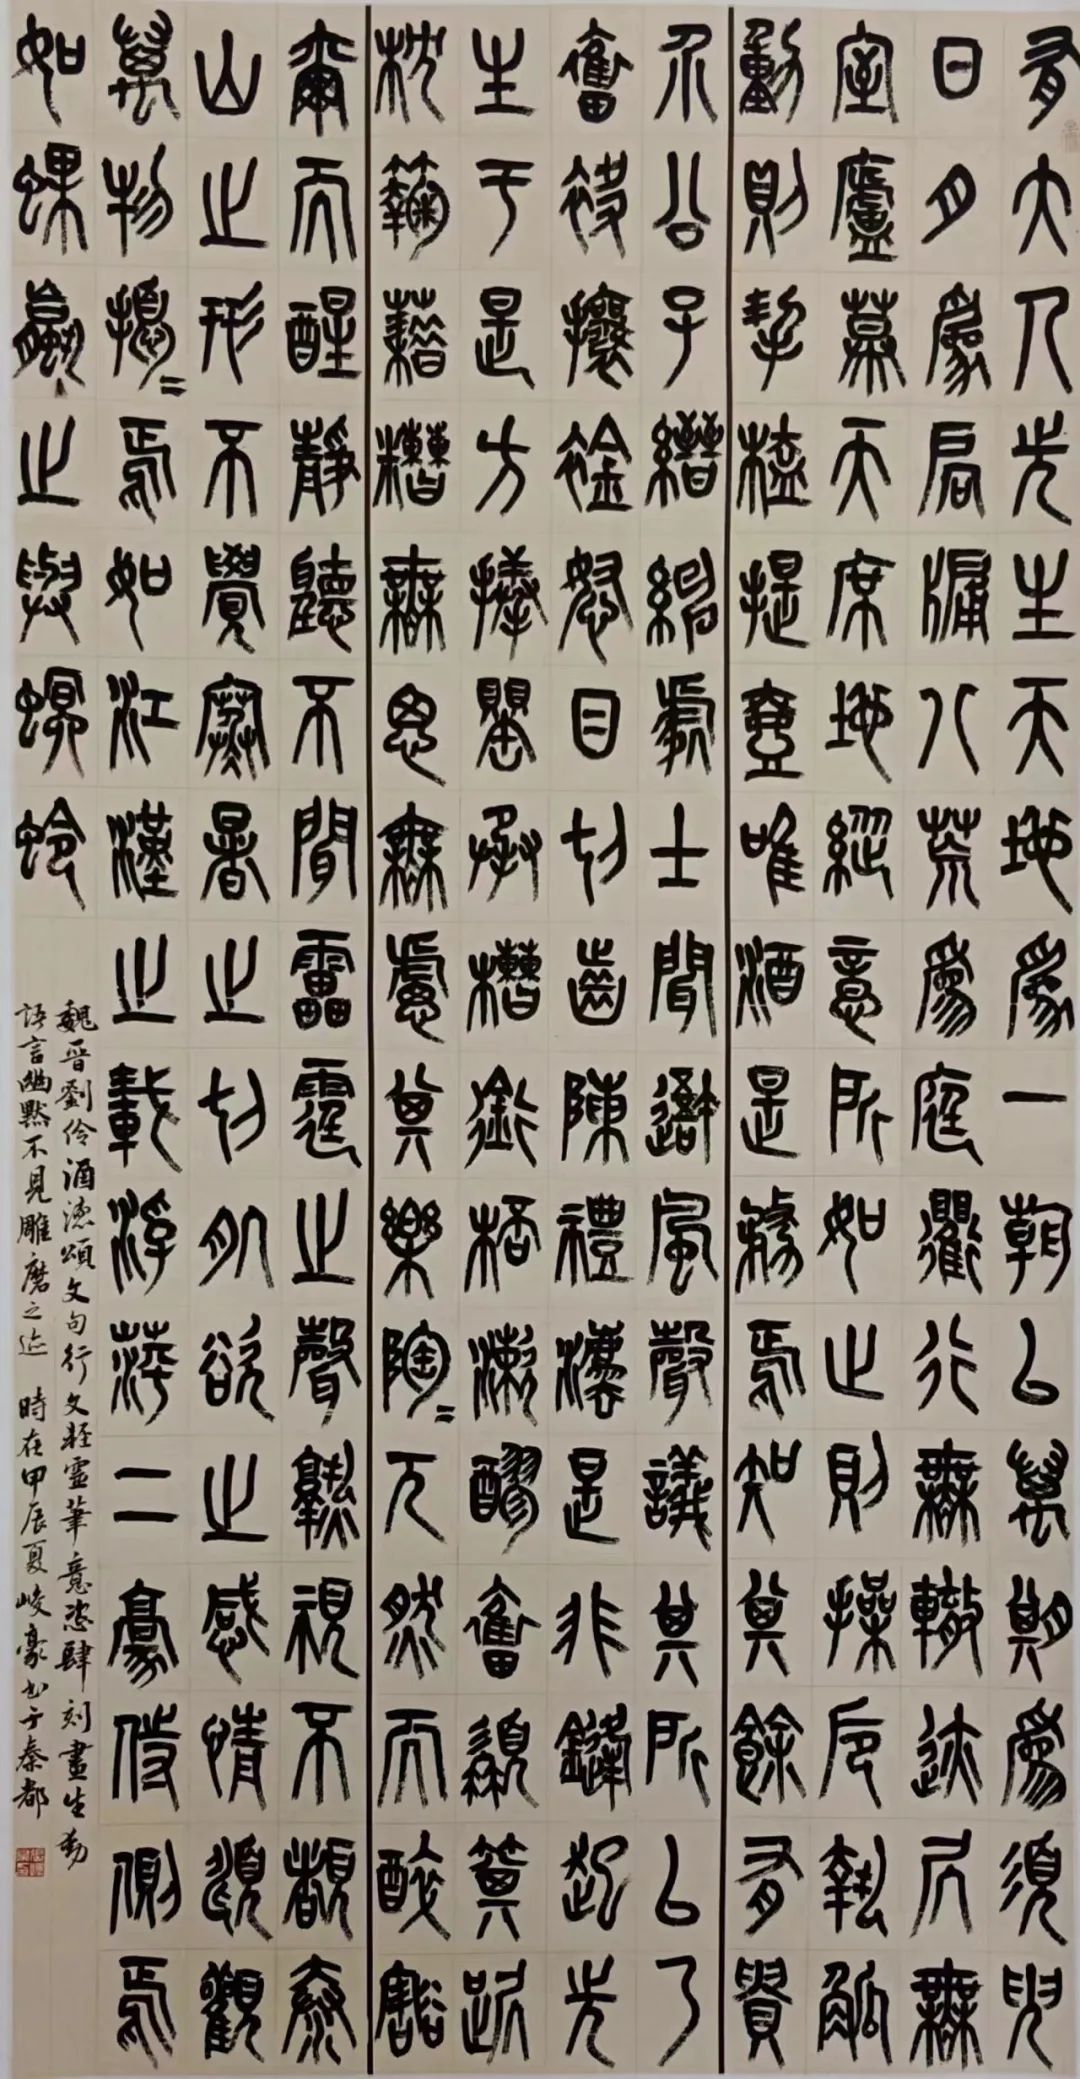 有大人先生天地爲一朝以萬期爲須臾
日月爲扃牖八荒爲庭衢行無轍跡居無
室廬幕天席地縱意所如止則操卮執觚
動則挈榼提壺唯酒是務焉知其餘有貴
介公子縉紳處士聞吾風聲議其所以乃
奮袂攘衿怒目切齒陳禮法是非鋒起先
生于是方捧罌承槽銜杯漱醪奮髯箕踞
枕麴藉糟無思無慮其樂陶=兀然而醉豁
爾而醒靜聽不聞雷霆之聲熟視不覩泰
山之形不覺寒暑之切肌欲之感情俯觀
萬物擾=焉如江漢之載浮萍二豪侍側焉
如蜾蠃之與螟蛉
魏晋劉伶酒德頌文句行文輕靈筆意恣肆刻畫生動
語言幽默不見雕磨之迹 時在甲辰夏峻豪書于秦都